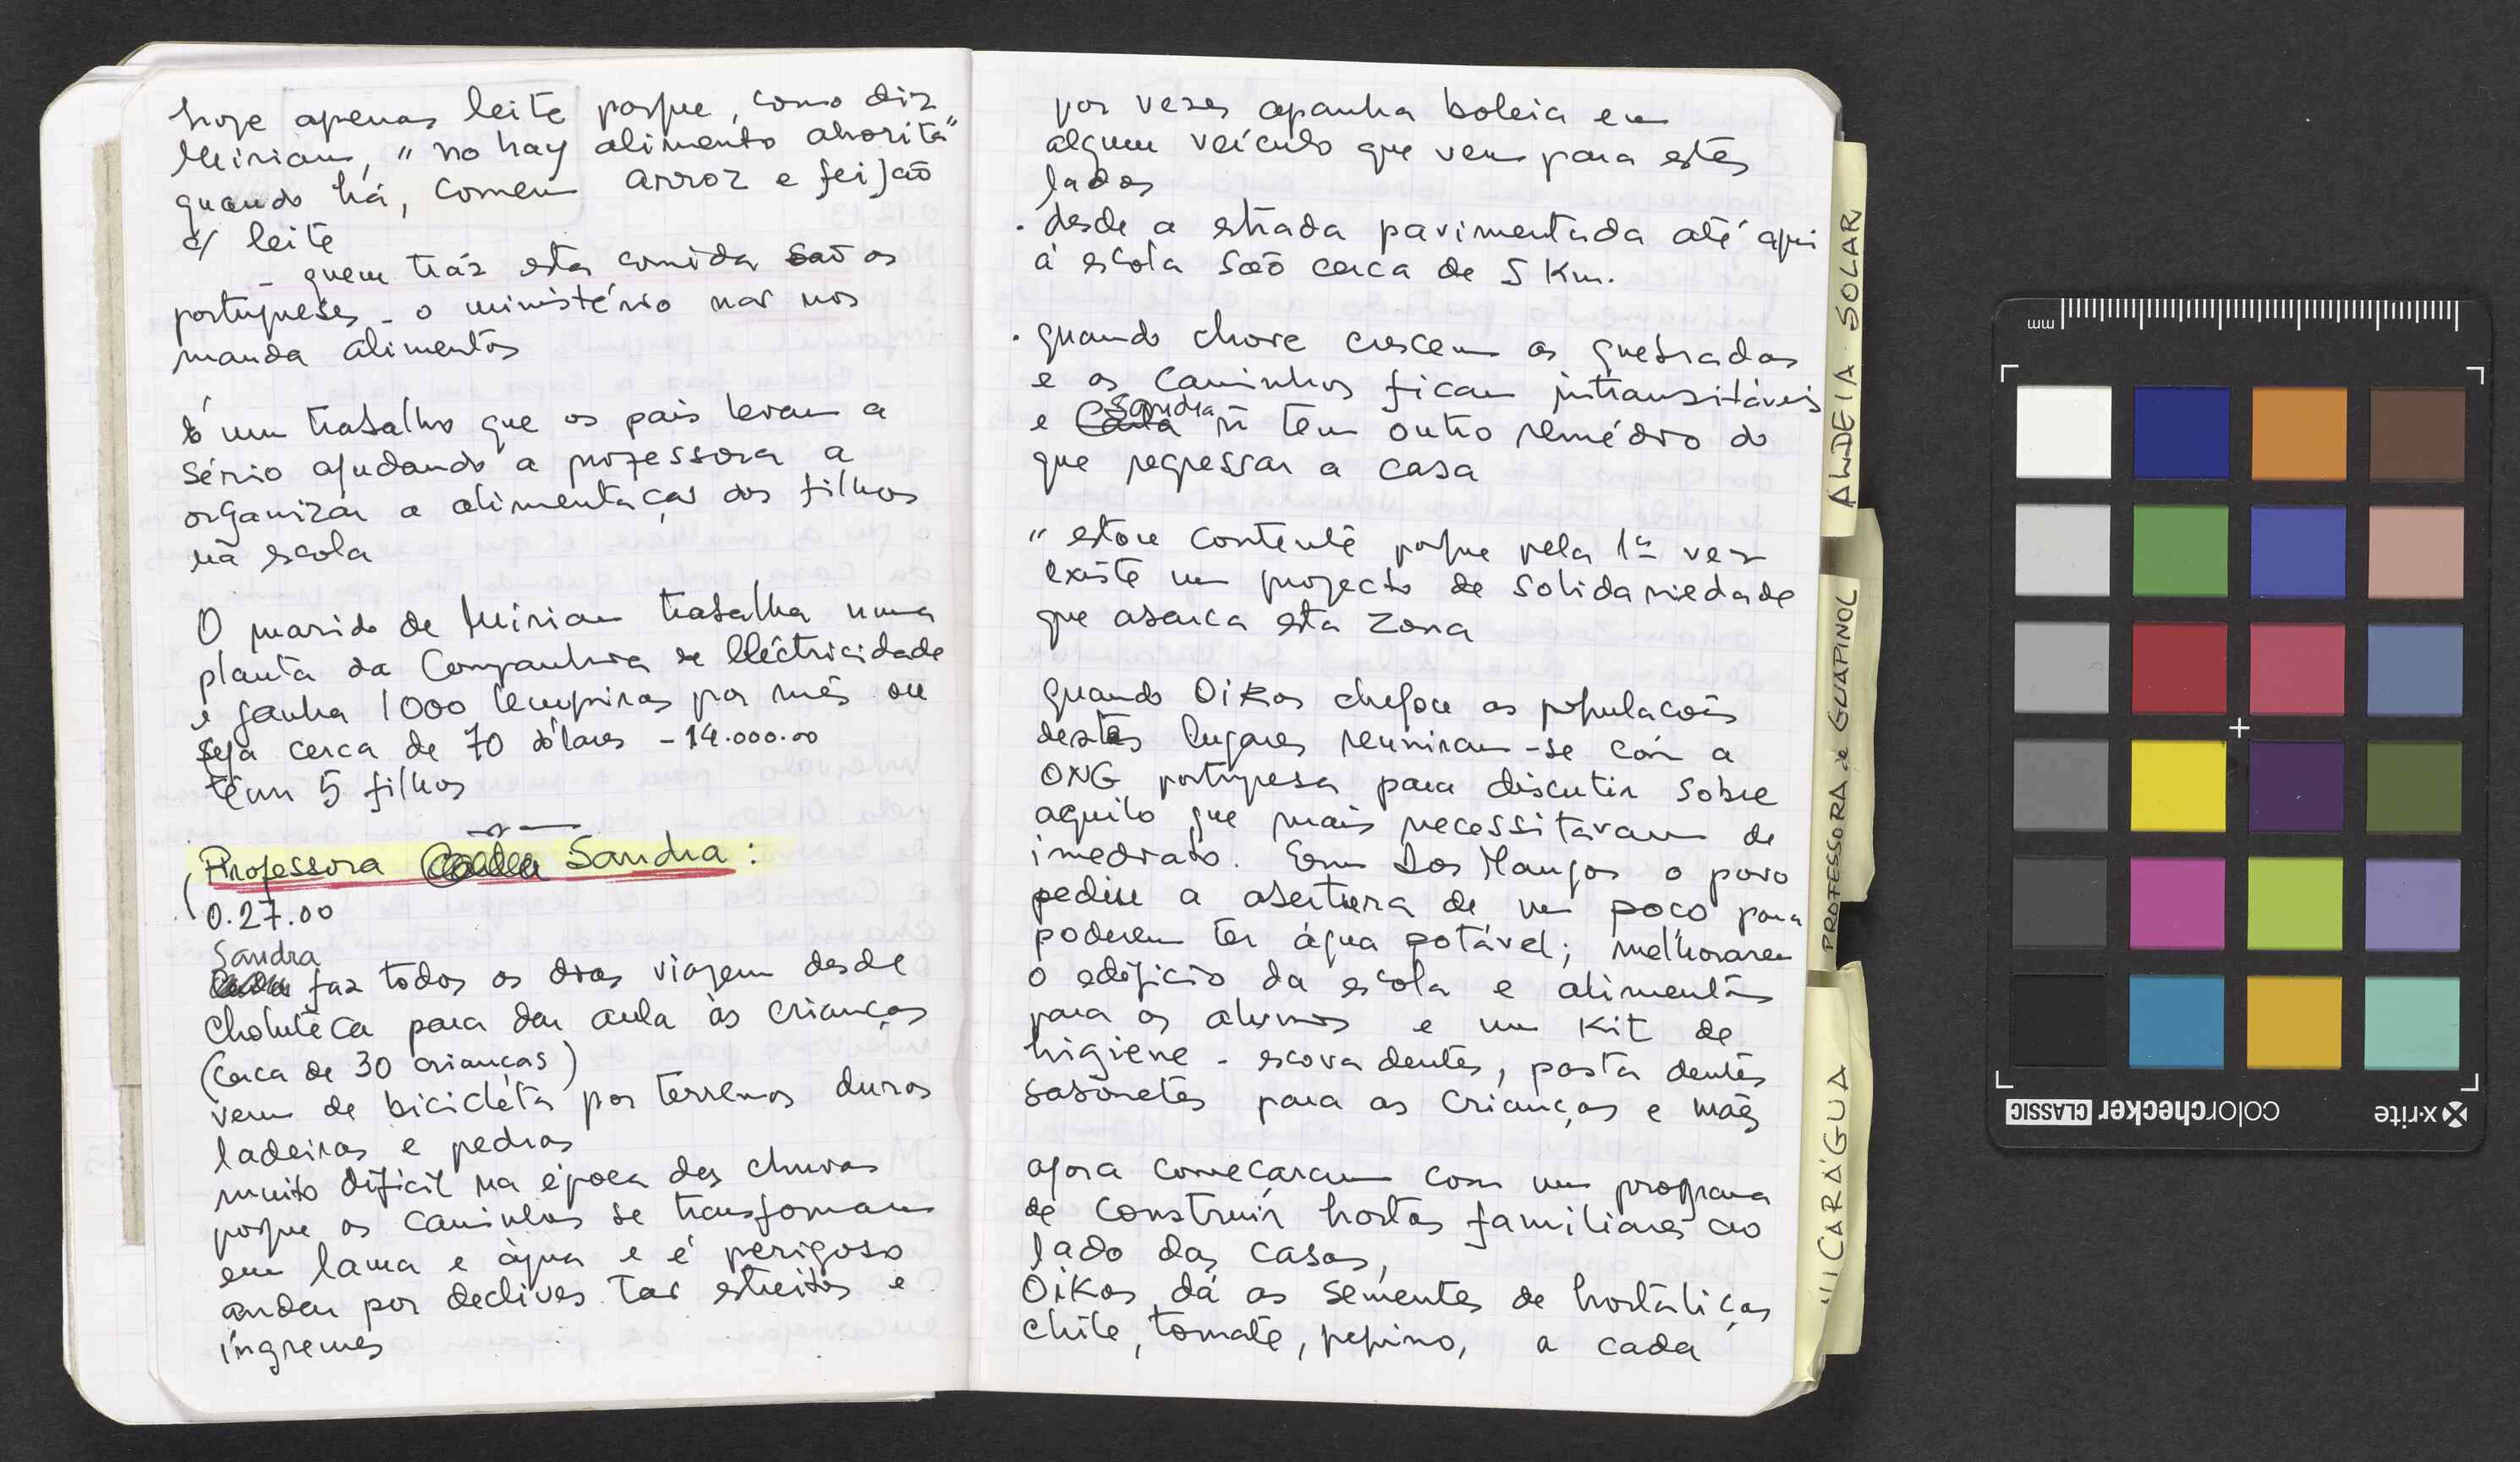 hoje apenas leite porque, como diz
Miriam, "no hay alimento ahorita"
quando há, comem arroz e feijão
c/ leite
- quem tráz esta comida são os
portugueses - o ministério não nos
manda alimentos
É um trabalho que os pais levam a
sério ajudando a professora a
organizar a alimentação dos filhos
na escola
O marido de Miriam trabalha numa
planta da Companhia de Eléctricidade
e ganha 1000 lempiras por mês ou
seja cerca de 70 dólares - 14.000.00
têm 5 filhos
Professora Sandra :
0.27.00
Sandra
faz todos os dias viagem desde
Choluteca para dar aula às crianças
(cerca de 30 crianças)
vem de bicicleta por terrenos duros
ladeiras e pedras
muito dificil na época das chuvas
porque os caminhos se transformam
em lama e água e é perigoso
andar por declives tão estreitos e
íngremes
por vezes apanha boleia em
algum veículo que vem para estes
lados
. desde a estrada pavimentada até aqui
à escola são cerca de 5 Km.
. quando chove crescem as quebradas
e os caminhos ficam intransitáveis
Sandra
e Carla ñ tem outro remédio do
que regressar a casa
" estou contente porque pela 1ª vez
existe um projecto de solidariedade
que abarca esta zona
quando Oikos chegou as populações
destes lugares reuniram-se com a
ONG portuguesa para discutir sobre
aquilo que mais necessitavam de
imediato. Em Los Mangos o povo
pediu a abertura de um poço para
poderem ter água potável; melhorarem
o edificio da escola e alimentos
para os alunos e um kit de
higiene - escova dentes, pasta dentes
sabonetes para as crianças e mães
agora começaram com um programa
de construir hortas familiares ao
lado das casas,
Oikos dá as sementes de hortaliças
chile, tomate, pepino, a cada
ALDEIA SOLAR
PROFESSORA de GUAPINOL
NICARÁGUA
mm
x-rite
colorchecker CLASSIC